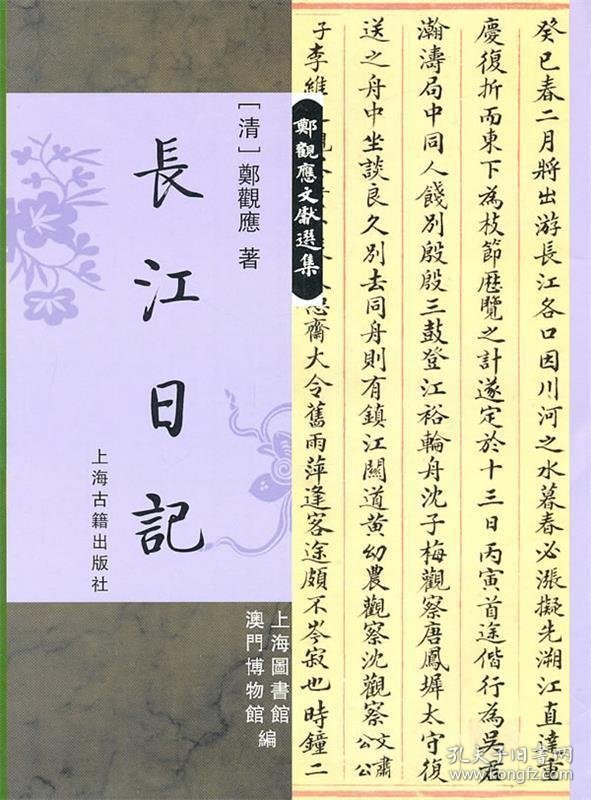 癸巳春二月將出游長江各口因川河之水暮春必漲擬先溯江直達重
慶復折而東下為枝節歷覽之計遂定於十三日丙寅首途偕行為吳君
瀚濤局中同人餞別殷殷三鼓登江裕輪舟沈子梅觀察唐鳳墀太守復
送之舟中坐談良久別去同舟則有鎮江關道黃幼農觀察沈觀察文肅公公
子李維
大令舊雨萍逢客途頗不岑寂也時鐘二
鄭觀應文獻選集
[清] 鄭觀應 著
長江日記
上海古籍出版社
上海圖書館
澳門博物館
編
孔夫子旧书网
www.kongfz.com